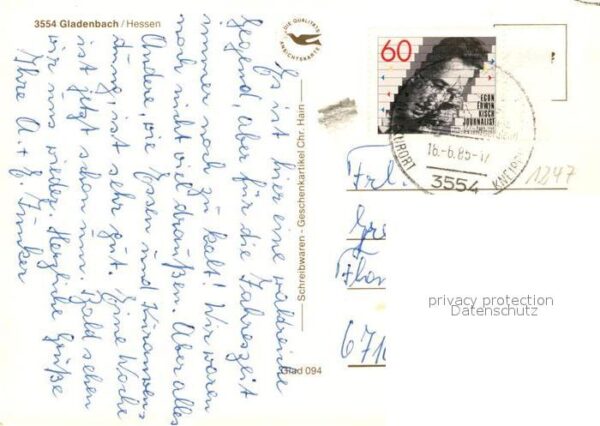 3554 Gladenbach / Hessen
DIE QUALITÄTS
ANSICHTSKARTE
Es ist hier eine waldreiche
Gegend, aber für die Jahreszeit
immer noch zu kalt! Wir waren
noch nicht viel draußen. Aber alles
Andere, wie Essen und Kuranwen-
dung, ist sehr gut. Eine Woche
ist jetzt schon um. Bald sehen
wir uns wieder. Herzliche Grüße
Ihre A. + E. Junker
Schreibwaren - Geschenkartikel Chr. Hain
Glad 094
60
EGON
ERWIN
KISCH
JOURNALIST
16.-6.85-17
3554
KURORT
KNEIPP
1247
Frl.
671
privacy protection
Datenschutz